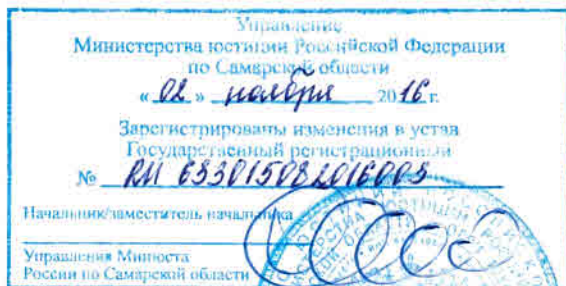 Управление
Министерства юстиции Российской Федерации
по Самарской области
« 02 » ноября 2016 г.
Зарегистрированы изменения в устав
Государственный регистрационный
№ RU 633015082016003
Начальник/заместитель начальника
Управления Минюста
России по Самарской области